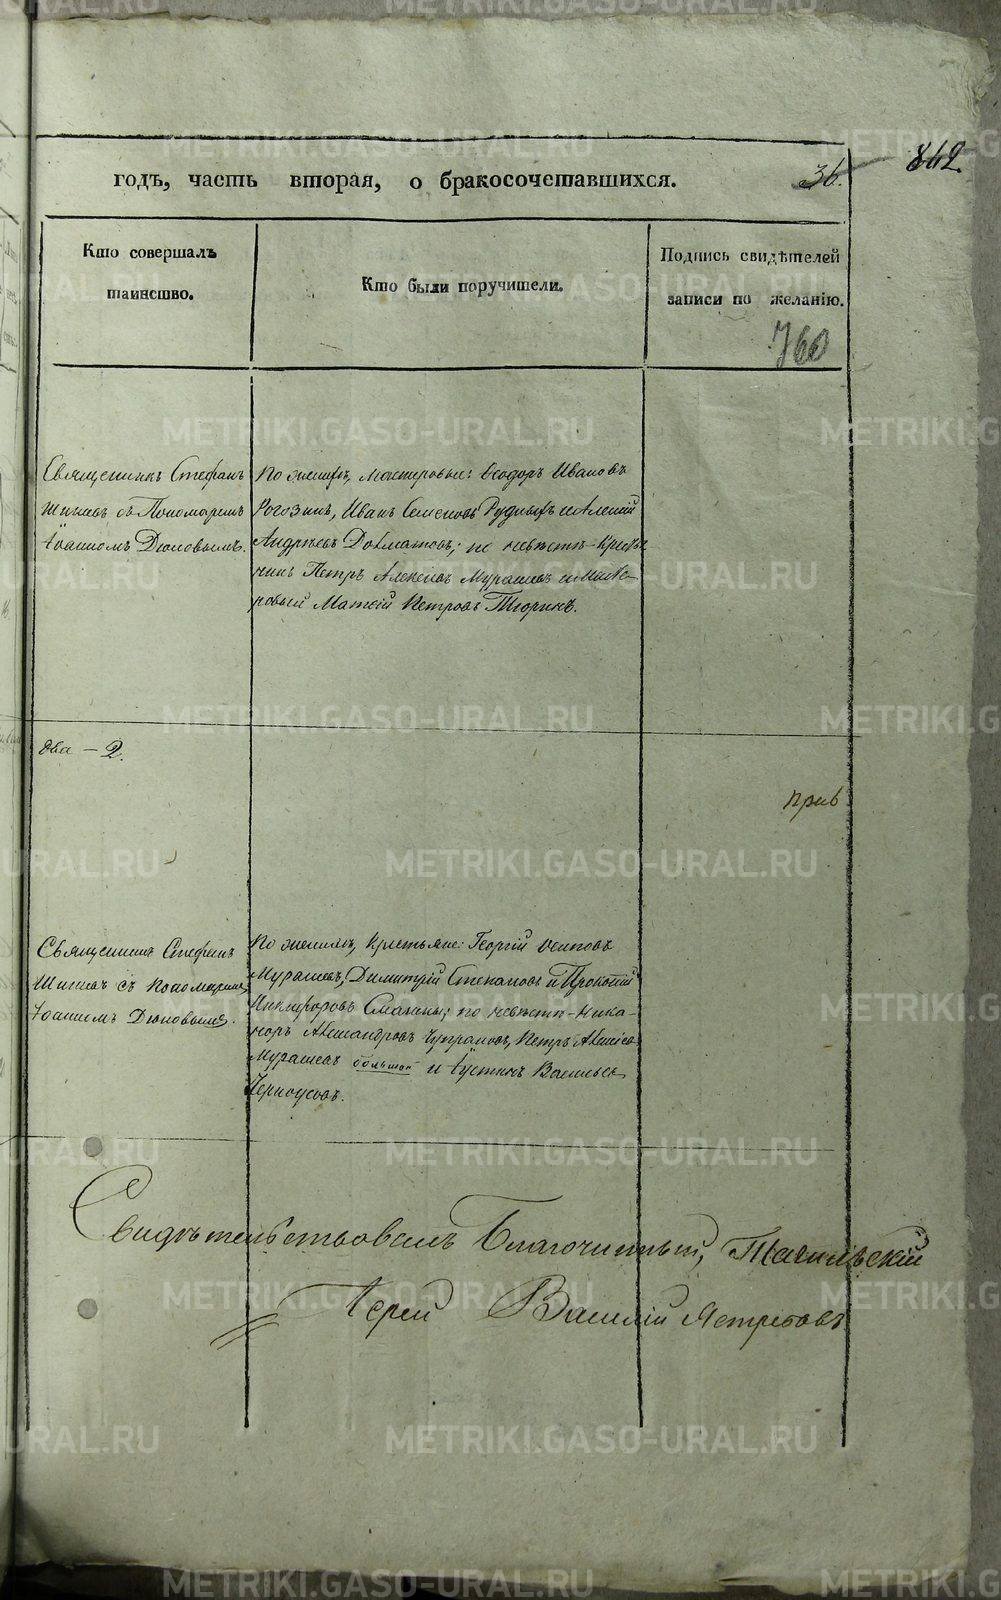 годъ, часть вторая, о бракосочетавшихся.
36.
842
Кто совершалъ
таинство.
Кто были поручители.
Подпись свидѣтелей
записи по желанію.
760
Священникъ Стефанъ
съ Пономаремъ
Іоанномъ Дюковымъ.
По женихѣ, мастеровые: Ѳеодоръ Ивановъ
Рогозинъ, Иванъ Семеновъ Рудныхъ и Алексій
Андреевъ Долматовъ; по невѣстѣ – Кресть
нинъ Петръ Алексѣевъ Мурашевъ и масте-
ровый Матѳій Петровъ Тюринъ.
два – 2.
прив
Священникъ Стефанъ
съ Пономаремъ
Іоанномъ Дюковымъ.
По женихѣ, Крестьяне: Георгій Осиповъ
Мурашевъ, Димитрій Степановъ и Прокопій
Никифоровъ по невѣстѣ – Ника-
норъ Александровъ Чупраковъ, Петръ Алексѣев
Мурашевъ большой и Іустинъ Васильев
Черноусовъ.
Свидѣтельствовалъ Благочинный, Тагильскій
Іерей Василій Ястребовъ
METRIKI.GASO-URAL.RU